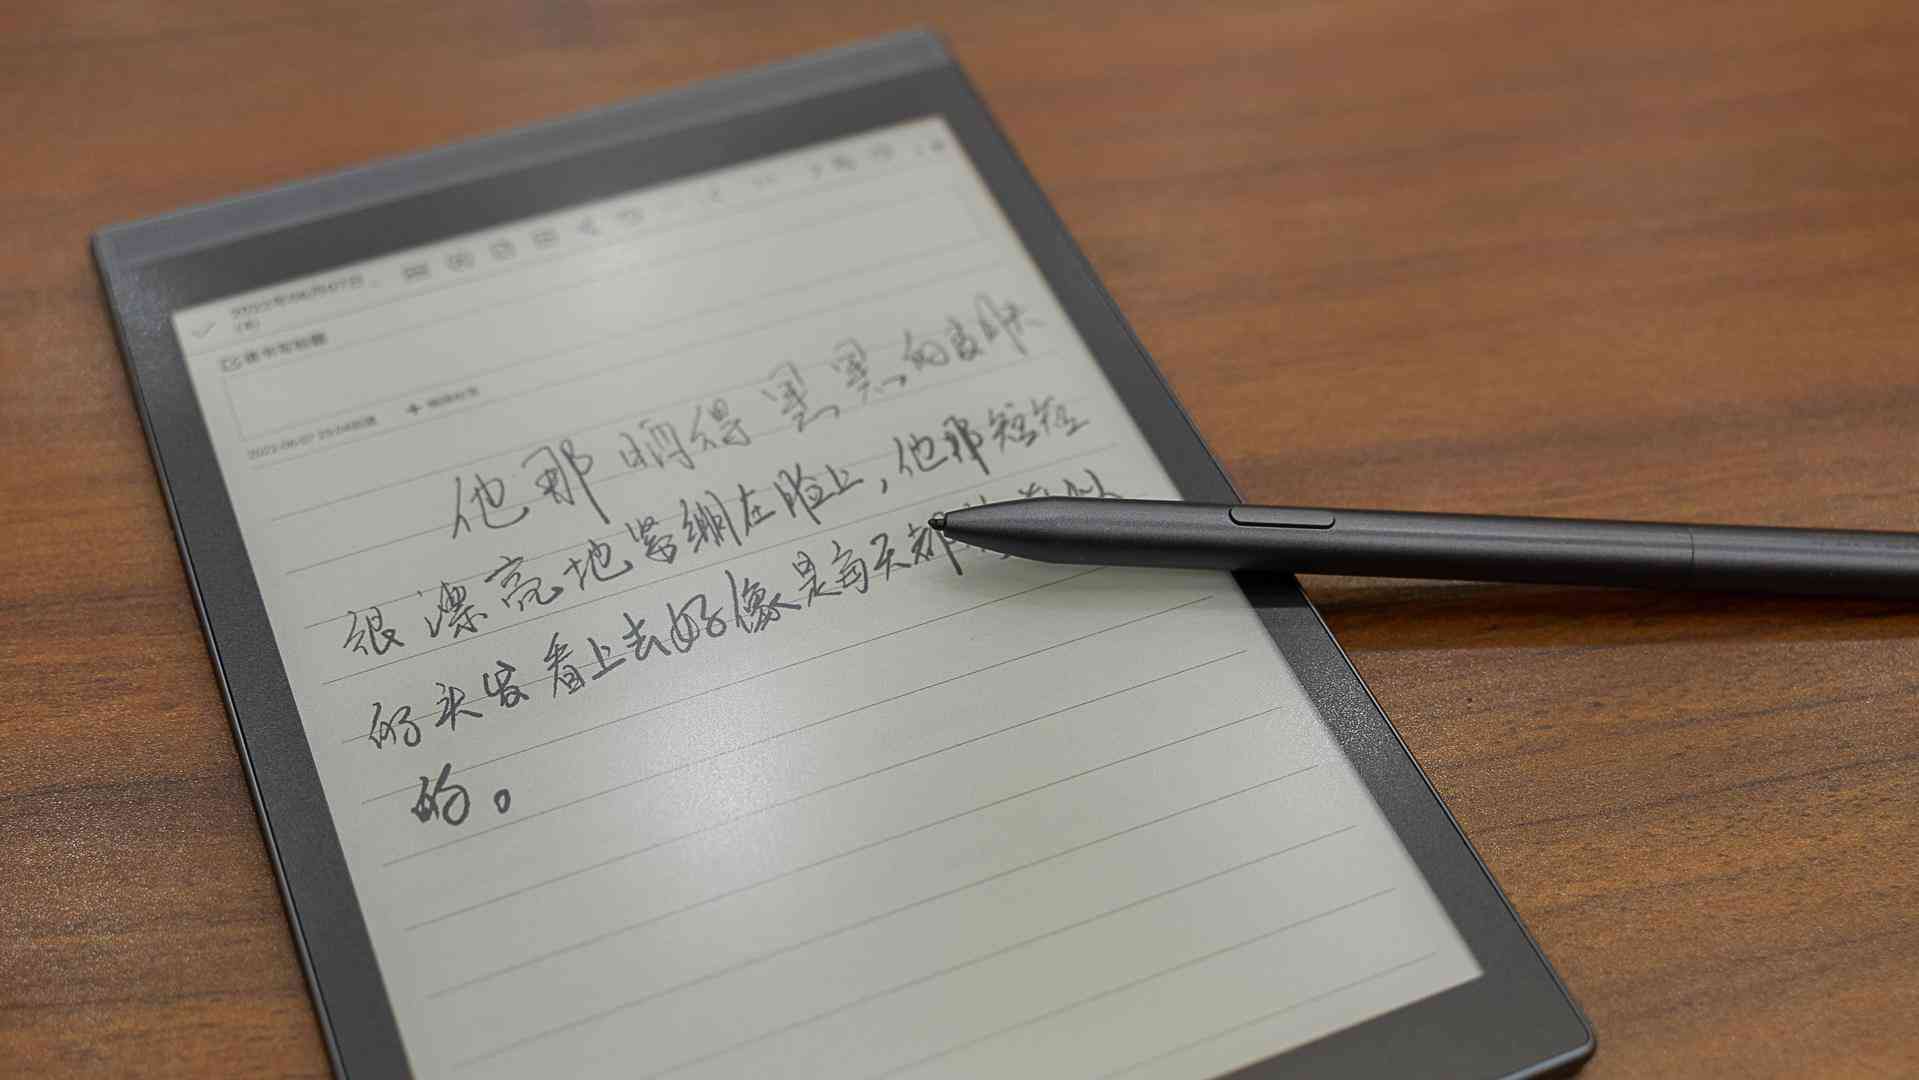 2022年06月07日_
请书写标题
他那晒得黑黑的皮肤
很漂亮地紧绷在脸上，他那短短
的头发看上去好像是每天都
的。